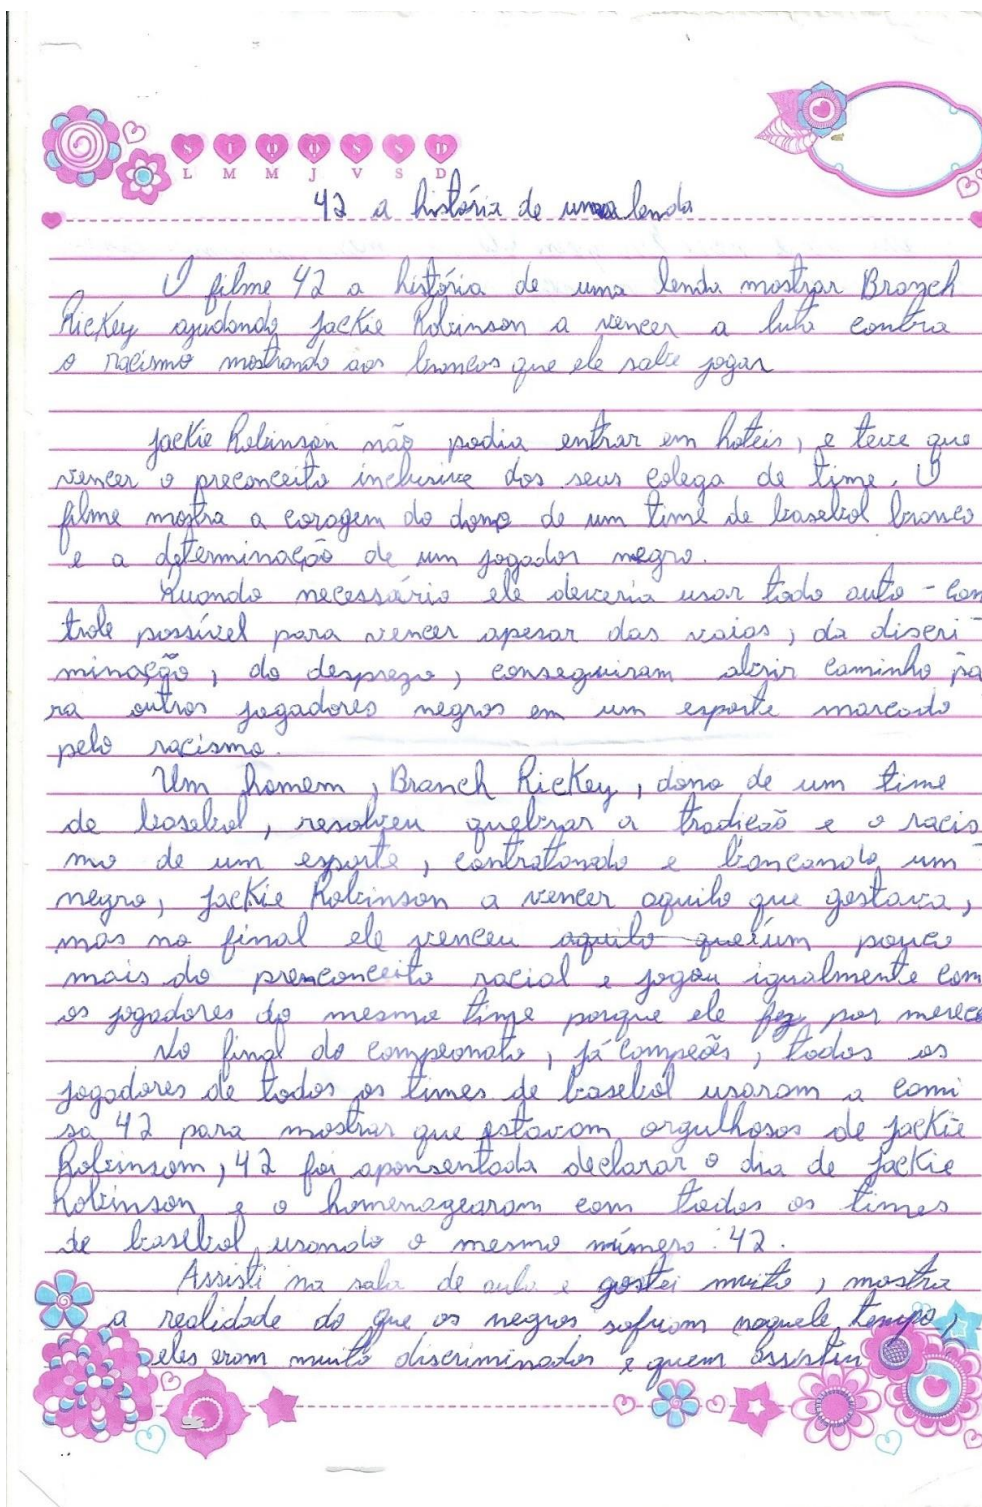 S T Q Q S S D
L M M J V S D
42 a história de uma lenda
O filme 42 a história de uma lenda mostrar Branch
Rickey ajudando Jackie Robinson a vencer a luta contra
o racismo mostrando aos brancos que ele sabe jogar
Jackie Robinson não podia entrar em hoteis, e teve que
vencer o preconceito inclusive dos seus colega de time. O
filme mostra a coragem do dono de um time de basebol branco
e a determinação de um jogador negro.
Quando necessário ele deveria usar todo auto-con
trole possível para vencer apesar das vaias, da discri-
minação, do desprezo, conseguiram abrir caminho pa
ra outros jogadores negros em um esporte marcado
pelo racismo.
Um homem, Branch Rickey, dono de um time
de basebol, resolveu quebrar a tradição e o racis-
mo de um esporte, contratando e bancando um
negro, Jackie Robinson a vencer aquilo que gostava,
mas no final ele venceu aquilo que um pouco
mais do preconceito racial e jogou igualmente com
os jogadores do mesmo time porque ele fez por merece
No final do campeonato, já campeões, todos os
jogadores de todos os times de basebol usaram a cami
sa 42 para mostrar que estavam orgulhosos de Jackie
Robinsom, 42 foi aponsentada declarar o dia de Jackie
Robinson e o homenagearam com todos os times
de basebol, usando o mesmo número: 42.
Assisti na sala de aula e gostei muito, mostra
a realidade do que os negros sofriam naquele tempo,
eles eram muito discriminados e quem assistiu